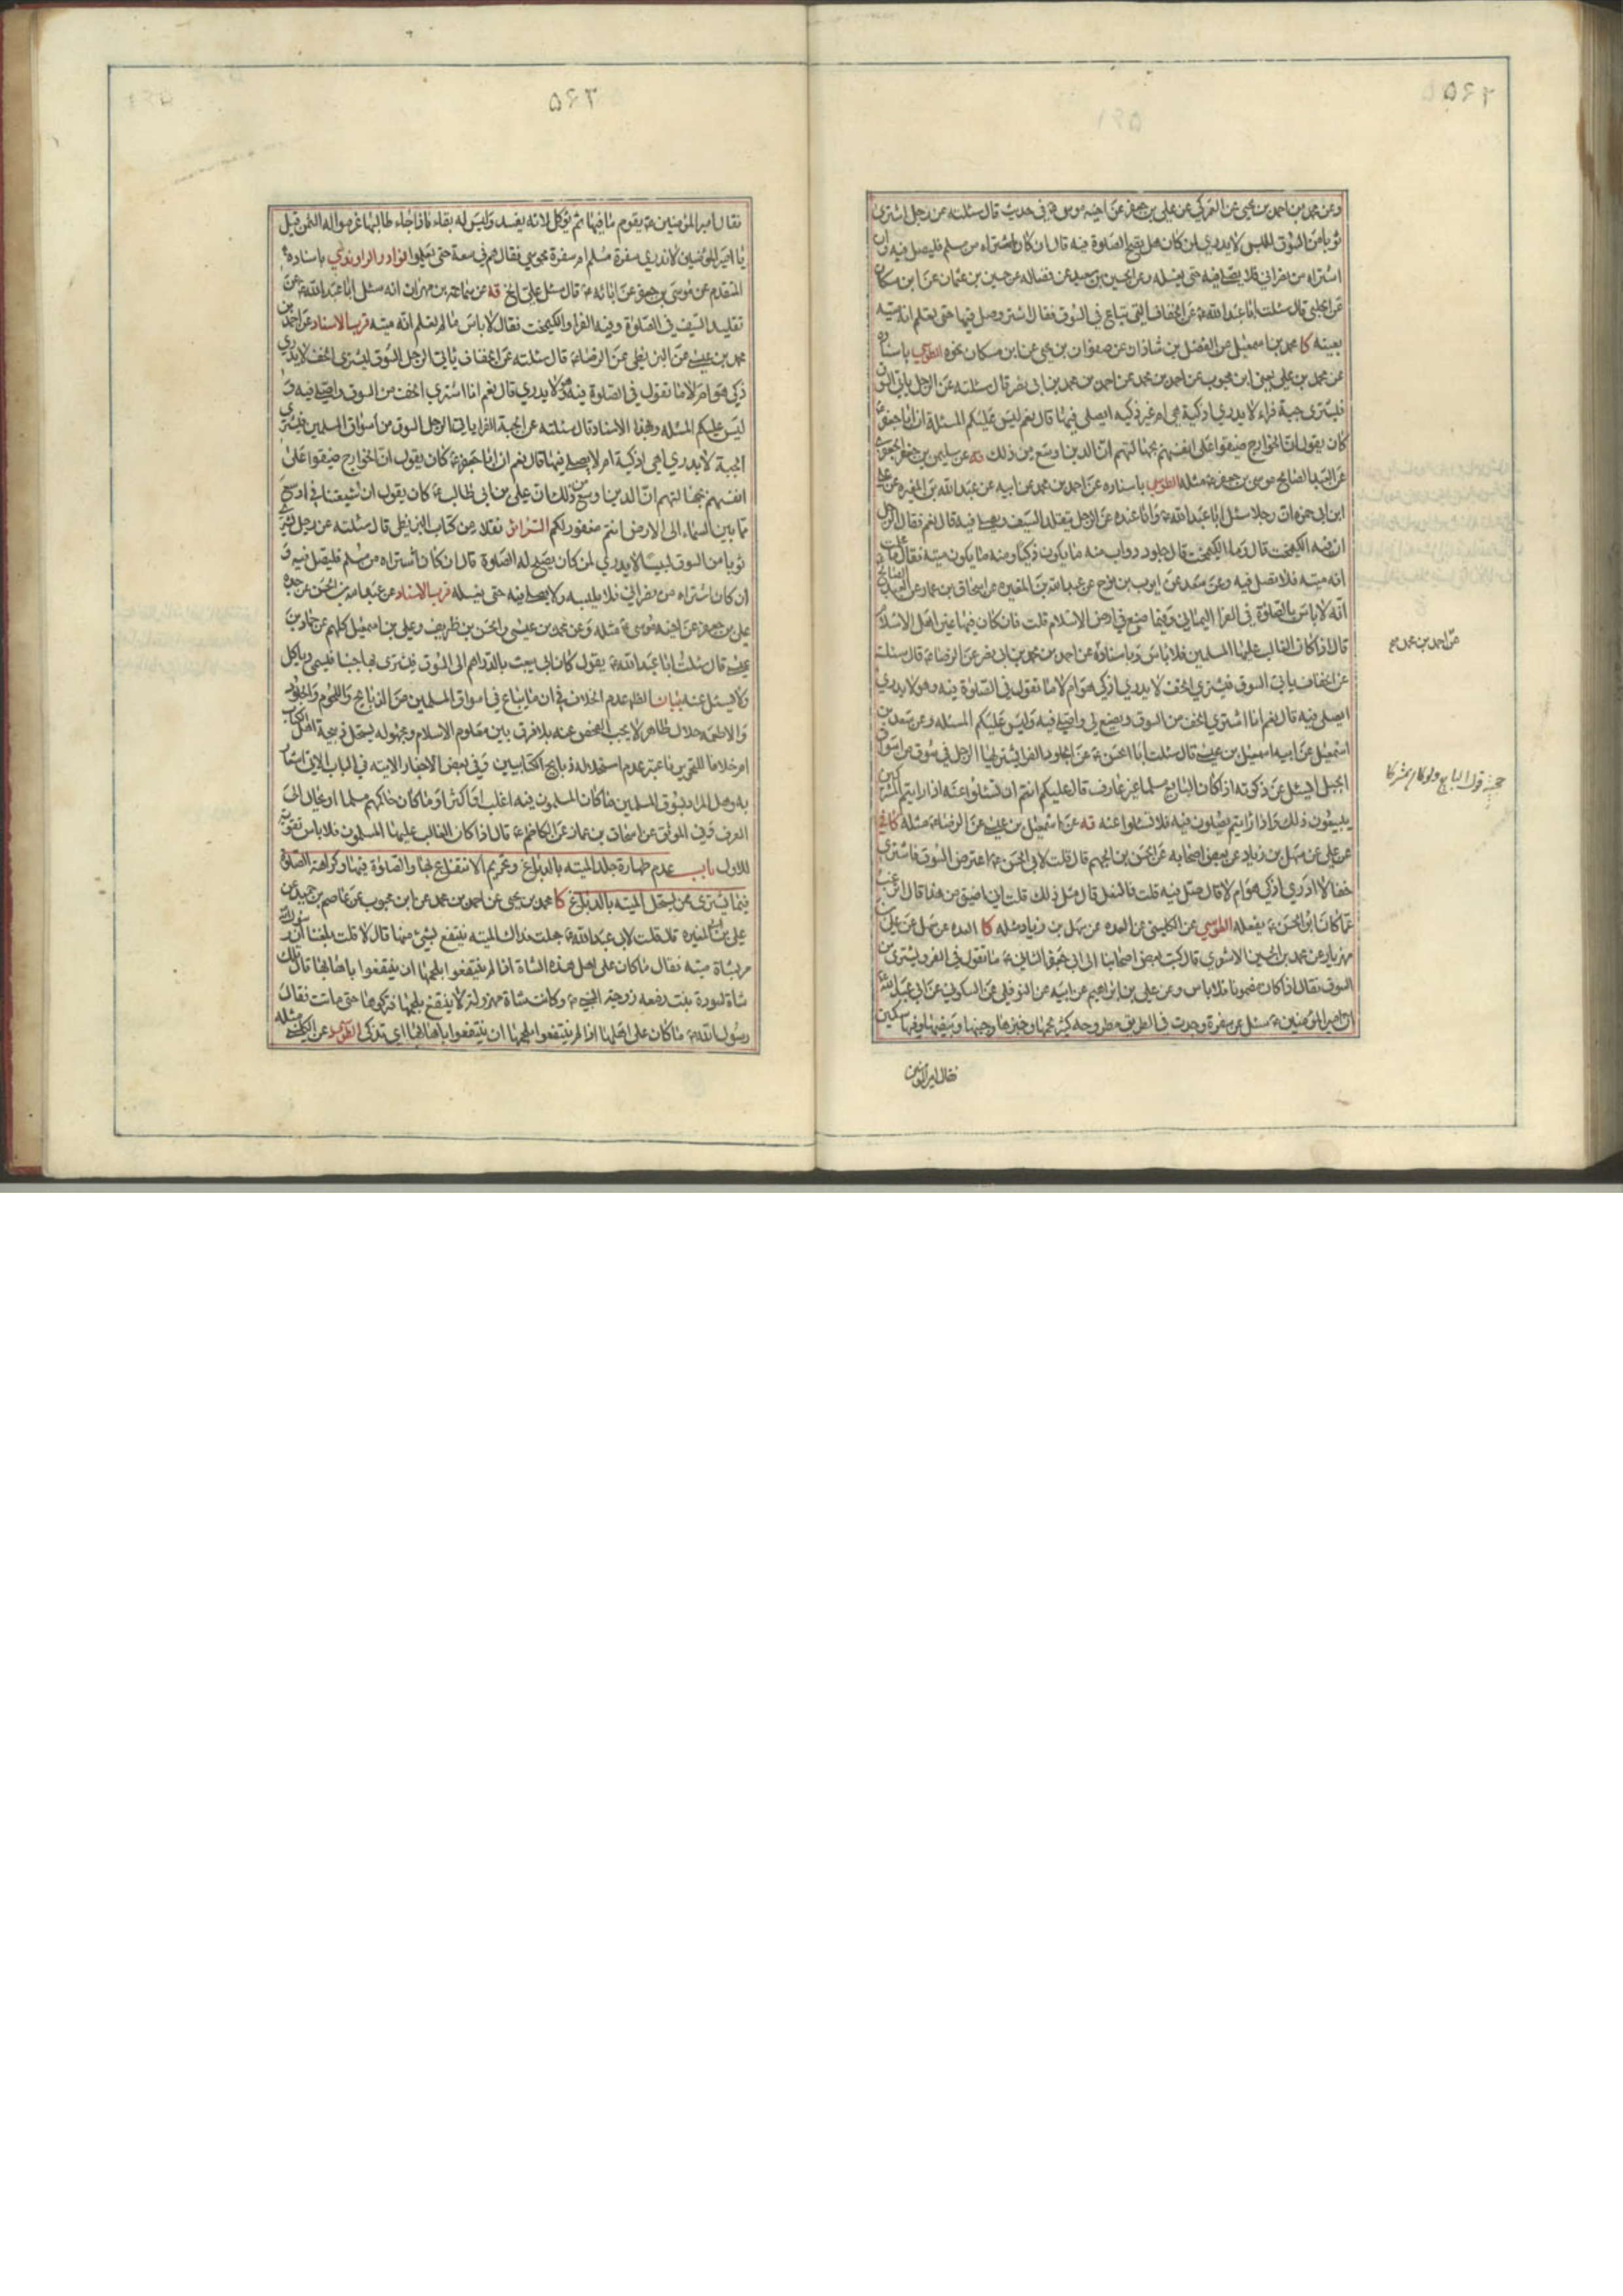 وعن محمد بن احمد بن يحيى عن العمركي عن علي بن جعفر عن اخيه موسى في حديث قال سئلته عن رجل اشترى
ثوبا من السوق للبس لا يدري لمن كان هل يصح الصلوة فيه قال ان كان اشتراه من مسلم فليصل فيه وان
اشتراه من نصراني فلا يصلي فيه حتى يغسله وعن الحسين بن سعيد عن فضاله عن حسين بن عثمان عن ابن مسكان
عن الحلبي قال سئلت ابا عبد الله ع عن الخفاف التي تباع في السوق فقال اشتر وصل فيها حتى تعلم انه ميته
بعينه كا محمد بن اسمعيل عن الفضل بن شاذان عن صفوان بن يحيى عن ابن مسكان نحوه الطوسي باسناده
عن محمد بن علي يعني ابن محبوب عن احمد بن محمد عن احمد بن محمد بن ابي نصر قال سئلته عن الرجل ياتي السوق
فيشترى جبة فراء لا يدري اذكية هي ام غير ذكيه ايصلي فيها قال نعم ليس عليكم المسئلة ان ابا جعفر ع
كان يقول ان الخوارج ضيقوا على انفسهم بجهالتهم ان الدين اوسع من ذلك فه عن سليمن بن جعفر الجعفري
عن العبد الصالح موسى بن جعفر ع مثله الطوسي باسناده عن احمد بن محمد عن ابيه عن عبد الله بن المغيره عن علي
ابن ابي حمزه ان رجلا سئل ابا عبد الله ع وانا عنده عن الرجل يتقلد السيف ويصلي فيه قال نعم فقال الرجل
ان فيه الكيمخت قال وما الكيمخت قال جلود دواب منه ما يكون ذكيا ومنه ما يكون ميته فقال ما علمت
انه ميته فلا تصل فيه وعن سعد عن ايوب بن نوح عن عبد الله بن المغيره عن اسحاق بن عمار عن العبد الصالح
انه لا باس بالصلوة في الفرا اليماني وفيما صنع في ارض الاسلام قلت فان كان فيها غير اهل الاسلام
قال اذا كان الغالب عليها المسلمين فلا باس وباسناده عن احمد بن محمد بن ابي نصر عن الرضا ع قال سئلته
عن الخفاف ياتي السوق فيشتري الخف لا يدري اذكي هو ام لا ما تقول في الصلوة فيه وهو لا يدري
ايصلى فيه قال نعم انا اشتري الخف من السوق ويصنع لي واصلي فيه وليس عليكم المسئله وعن سعد بن
اسمعيل عن ابيه اسمعيل بن عيسى قال سئلت ابا الحسن ع عن الجلود الفرا يشتريها الرجل في سوق من اسواق
الجبل ايسئل عن ذكوته اذا كان البايع مسلما غير عارف قال عليكم انتم ان تسئلوا عنه اذا رايتم المشركين
يبيعون ذلك واذا رايتم يصلون فيه فلا تسئلوا عنه فه عن اسمعيل بن عيسى عن الرضا ع مثله كا
عن علي عن سهل بن زياد عن بعض اصحابه عن الحسن بن الجهم قال قلت لابي الحسن ع اعترض السوق فاشترى
خفا لا ادري اذكي هو ام لا قال صل فيه قلت فالنعل قال مثل ذلك قلت اني اضيق من هذا قال اترغب
عما كان ابو الحسن ع يفعله الطوسي عن الكليني عن العده عن سهل بن زياد مثله كا العده عن سهل عن علي بن
مهزيار عن محمد بن الحسين الاشعري قال كتب بعض اصحابنا الى ابي جعفر الثاني ع ما تقول في الفرو يشترى من
السوق فقال اذا كان مضمونا فلا باس وعن علي بن ابراهيم عن ابيه عن النوفلي عن السكوني عن ابي عبد الله
ان امير المؤمنين ع سئل عن سفرة وجدت في الطريق مطروحه كثير لحمها وخبزها وجبنها وبيضها وفيها سكين
فقال امير المؤمنين
عن احمد بن محمد
حجية قول البايع ولو كان مشركا
٢٦٥
فقال امير المؤمنين ع يقوم ما فيها ثم يؤكل لانه يفسد وليس له بقاء فاذا جاء طالبها غرموا له الثمن قيل
يا امير المؤمنين لا ندري سفرة مسلم ام سفرة مجوسي فقال هم في سعة حتى يعلموا نوادر الراوندي باسناده
المتقدم عن موسى بن جعفر عن ابائه ع قال سئل علي الخ فه عن سماعة بن مهران انه سئل ابا عبد الله ع عن
تقليد السيف في الصلوة وفيه الفرا والكيمخت فقال لا باس ما لم تعلم انه ميته قرب الاسناد عن احمد بن
محمد بن عيسى عن البزنطي عن الرضا ع قال سئلته عن الخفاف ياتي الرجل السوق ليشترى الخف لا يدري
ذكي هو ام لا ما تقول في الصلوة فيه وهو لا يدري قال نعم انا اشتري الخف من السوق واصلي فيه و
ليس عليكم المسئله وبهذا الاسناد قال سئلته عن الجبة الفرا ياتي الرجل السوق من اسواق المسلمين فيشتري
الجبة لا يدري اهي اذكية ام لا يصلي فيها قال نعم ان ابا جعفر ع كان يقول ان الخوارج ضيقوا على
انفسهم بجهالتهم ان الدين اوسع من ذلك ان علي بن ابي طالب ع كان يقول ان شيعتنا في اوسع
ما بين السماء الى الارض انتم مغفور لكم السرائر نقلا من كتاب البزنطي قال سئلته عن رجل يشتري
ثوبا من السوق لبيسا لا يدري لمن كان يصح له الصلوة قال ان كان اشتراه من مسلم فليصل فيه و
ان كان اشتراه من نصراني فلا يلبسه ولا يصلي فيه حتى يغسله قرب الاسناد عن عبد الله بن الحسن عن جده
علي بن جعفر عن اخيه موسى ع مثله وعن محمد بن عيسى والحسن بن ظريف وعلي بن اسمعيل كلهم عن حماد بن
عيسى قال سئلت ابا عبد الله ع يقول كان ابي يبعث بالدراهم الى السوق فيشترى بها جبنا فيسمي وياكل
ولا يسئل عنه بيان الظ عدم الخلاف في ان ما يباع في اسواق المسلمين من الذبايح واللحوم والجلود
والاطعمه حلال طاهر لا يجب الفحص عنه بلا فرق بين معلوم الاسلام ومجهوله يستحل ذبيحة اهل الكتاب
ام خلافا للتحرير فاعتبر عدم استحلاله ذبايح الكتابيين وفي بعض الاخبار الاتيه في الباب الاتي اشعار
به وهل المراد بسوق المسلمين ما كان المسلمون فيه اغلب او اكثر او ما كان حاكمهم مسلما او يحال الى
العرف وفي الموثق عن اسحاق بن عمار عن الكاظم ع قال اذا كان الغالب عليها المسلمون فلا باس تقوية
للاول باب عدم طهارة جلد الميته بالدباغ وتحريم الانتفاع بها والصلوة فيها وكراهة الصلوة
فيما يشترى ممن يستحل الميته بالدباغ كا محمد بن يحيى عن احمد بن محمد عن ابن محبوب عن عاصم بن حميد عن
علي بن المغيره قال قلت لابي عبد الله ع جعلت فداك الميته ينتفع بشيء منها قال لا قلت بلغنا ان رسول الله
مر بشاة ميته فقال ما كان على اهل هذه الشاة اذا لم ينتفعوا بلحمها ان ينتفعوا باهابها قال تلك
شاة لسودة بنت زمعه زوجة النبي ص وكانت شاة مهزولة لا ينتفع بلحمها فتركوها حتى ماتت فقال
رسول الله ص ما كان على اهلها اذا لم ينتفعوا بلحمها ان ينتفعوا باهابها اي تذكى الطوسي عن الكليني مثله